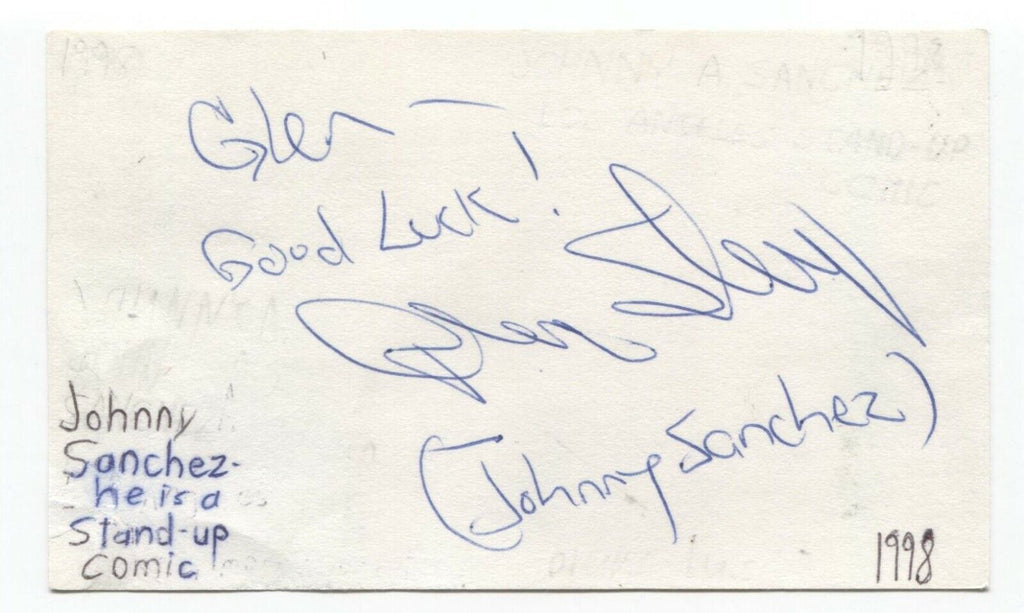 Glen
Good Luck!
(Johnny Sanchez)
Johnny
Sanchez-
he is a
Stand-up
comic
1998